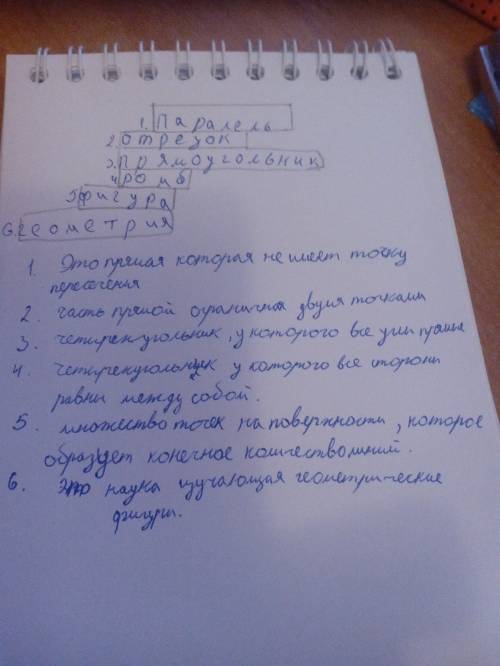 1. Паралель
2. отрезок
3. прямоугольник
4. ромб
5. фигура
6. геометрия
1. Это прямая которая не имеет точку
пересечения
2. часть прямой ограничена двумя точками
3. четырехугольник, у которого все углы прямые
4. четырехугольник у которого все стороны
равны между собой.
5. множество точек на поверхности, которое
образует конечное количество линий.
6. Это наука изучающая геометрические
фигуры.